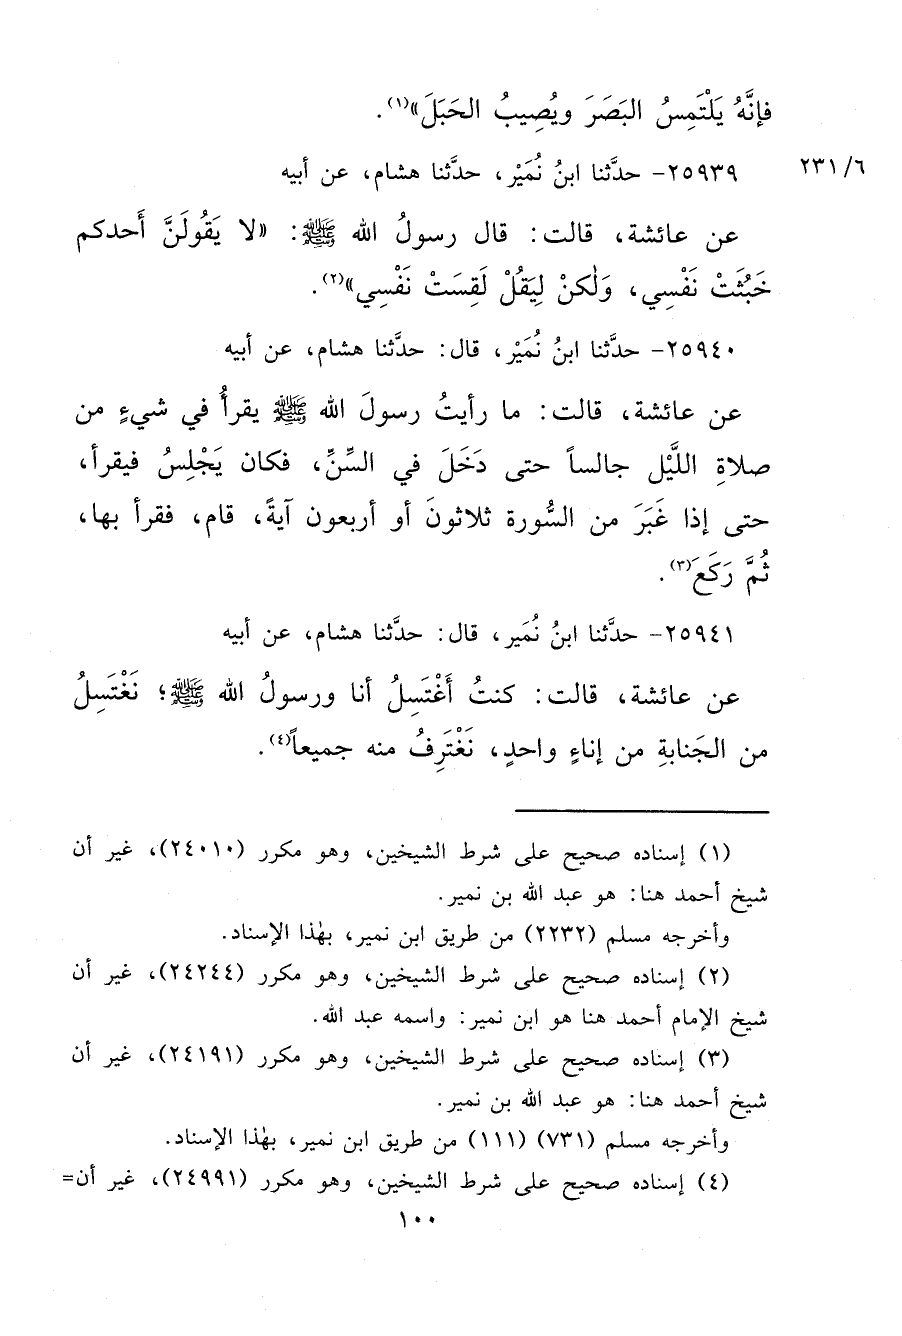 فإنَّهُ يَلْتَمِسُ البَصَرَ ويُصِيبُ الحَبَلَ»(١).
٢٣١/٦
٢٥٩٣٩- حدَّثنا ابنُ نُمَيْر، حدَّثنا هشام، عن أبيه
عن عائشة، قالت: قال رسولُ الله ﷺ: «لا يَقُولَنَّ أَحدكم
خَبُثَتْ نَفْسِي، وَلٰكنْ لِيَقُلْ لَقِسَتْ نَفْسِي»(٢).
٢٥٩٤٠- حدَّثنا ابنُ نُمَيْر، قال: حدَّثنا هشام، عن أبيه
عن عائشة، قالت: ما رأيتُ رسولَ الله ﷺ يقرأُ في شيءٍ من
صلاةِ اللَّيْل جالساً حتى دَخَلَ في السِّنِّ، فكان يَجْلِسُ فيقرأ،
حتى إذا غَبَرَ من السُّورة ثلاثونَ أو أربعون آيةً، قام، فقرأ بها،
ثُمَّ رَكَعَ(٣).
٢٥٩٤١- حدَّثنا ابنُ نُمَير، قال: حدَّثنا هشام، عن أبيه
عن عائشة، قالت: كنتُ أَغْتَسِلُ أنا ورسولُ الله ﷺ؛ نَغْتَسِلُ
من الجَنابةِ من إناءٍ واحدٍ، نَغْتَرِفُ منه جميعاً(٤).
(١) إسناده صحيح على شرط الشيخين، وهو مكرر (٢٤٠١٠)، غير أن
شيخ أحمد هنا: هو عبد الله بن نمير.
وأخرجه مسلم (٢٢٣٢) من طريق ابن نمير، بهٰذا الإسناد.
(٢) إسناده صحيح على شرط الشيخين، وهو مكرر (٢٤٢٤٤)، غير أن
شيخ الإمام أحمد هنا هو ابن نمير: واسمه عبد الله.
(٣) إسناده صحيح على شرط الشيخين، وهو مكرر (٢٤١٩١)، غير أن
شيخ أحمد هنا: هو عبد الله بن نمير.
وأخرجه مسلم (٧٣١) (١١١) من طريق ابن نمير، بهٰذا الإسناد.
(٤) إسناده صحيح على شرط الشيخين، وهو مكرر (٢٤٩٩١)، غير أن=
١٠٠